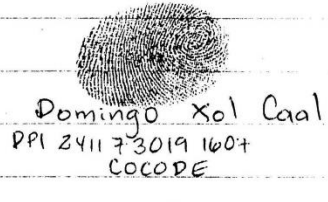 Domingo Xol Caal
DPI 2411 73019 1607
COCODE